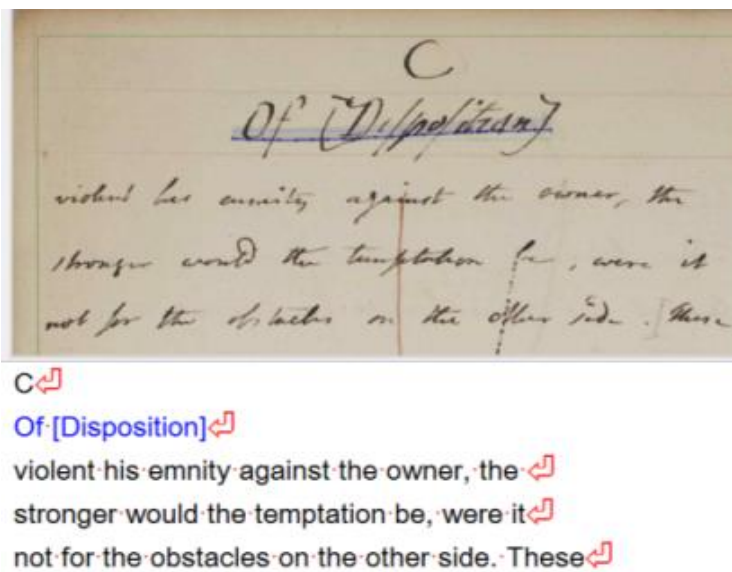 C
Of [Disposition]
violent his enmity against the owner, the
stronger would the temptation be, were it
not for the obstacles on the other side. [These
C
Of [Disposition]
violent his emnity against the owner, the
stronger would the temptation be, were it
not for the obstacles on the other side. These